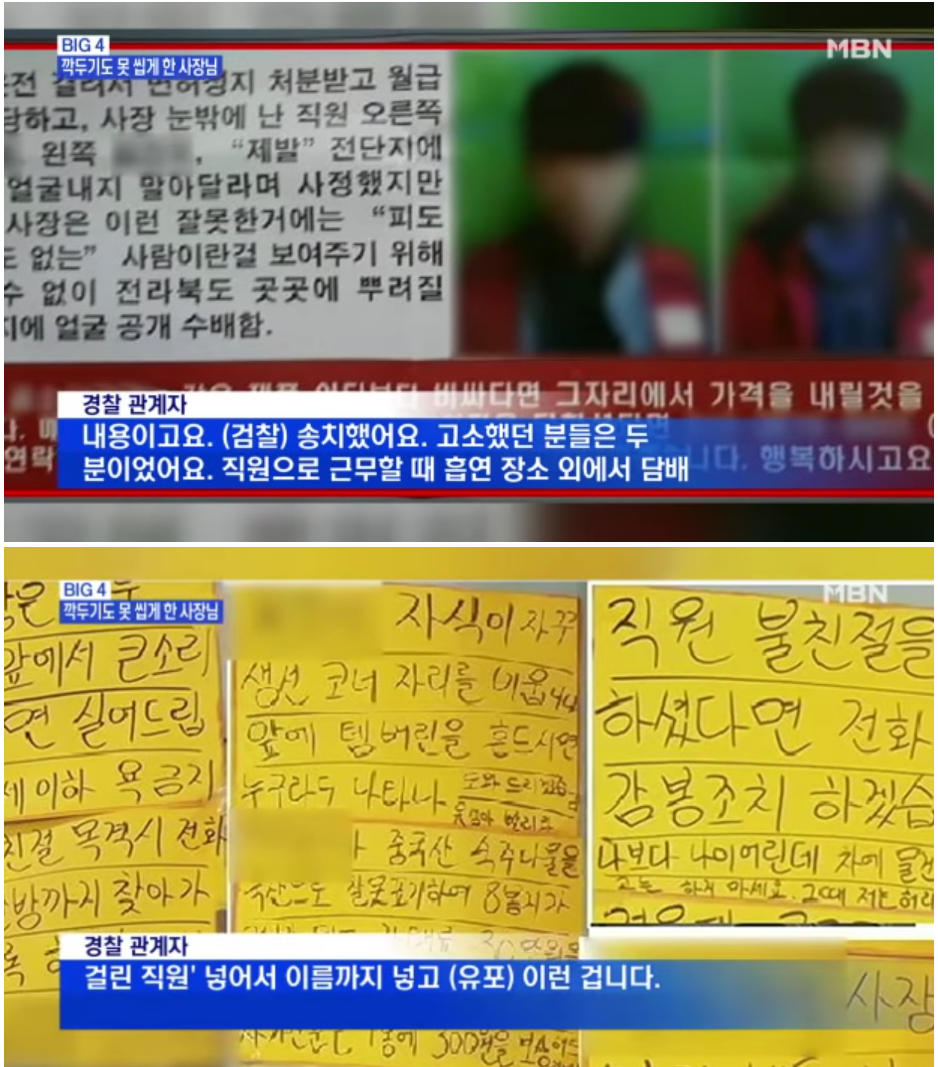 BIG 4
MBN
깍두기도 못 씹게 한 사장님
전 걸려서 면허정지 처분받고 월급
당하고, 사장 눈밖에 난 직원 오른쪽
왼쪽 , “제발” 전단지에
얼굴내지 말아달라며 사정했지만
사장은 이런 잘못한거에는 “피도
없는” 사람이란걸 보여주기 위해
수 없이 전라북도 곳곳에 뿌려질
지에 얼굴 공개 수배함.
비싸다면 그자리에서 가격을 내릴것을
연락
니다. 행복하시고요
경찰 관계자
내용이고요. (검찰) 송치했어요. 고소했던 분들은 두
분이었어요. 직원으로 근무할 때 흡연 장소 외에서 담배
BIG 4
MBN
깍두기도 못 씹게 한 사장님
앞에서 큰소리
면 실어드립
세이하 욕금지
친절 목격시 전화
방까지 찾아가
자식이 자꾸
생선 코너 자리를 비웁니다
앞에 템버린을 흔드시면
누구라도 나타나 도와드리겠습
중국산 숙주나물을
국산으로 잘못표기하여 8봉지가
직원 불친절을
하셨다면 전화
감봉조치 하겠습
나보다 나이어린데 차에 물건
하게 마세요. 그때 저는 허리
사장
경찰 관계자
걸린 직원' 넣어서 이름까지 넣고 (유포) 이런 겁니다.